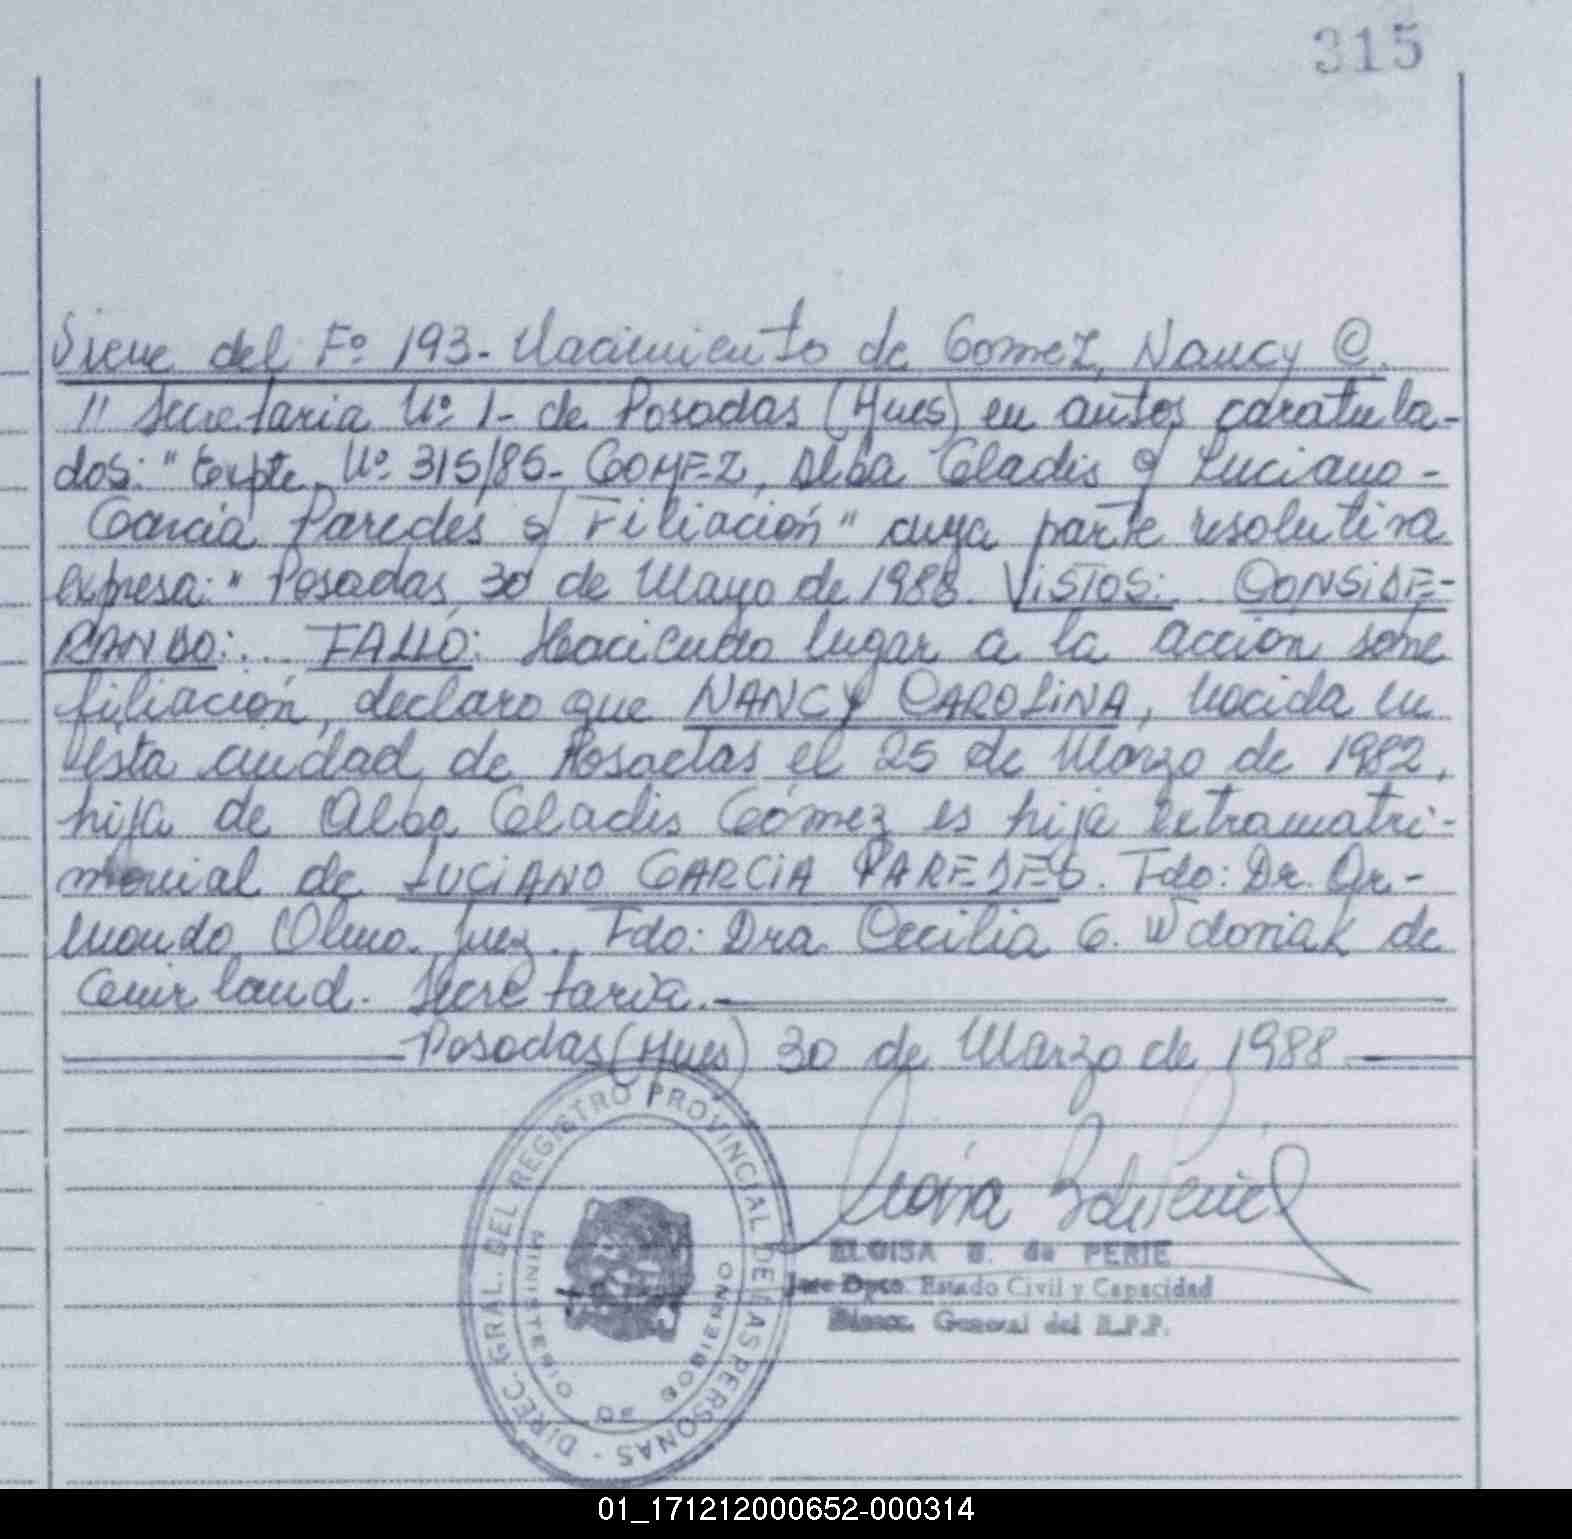 315
Viene del Fº 193 - Nacimiento de Gomez, Nancy C.
" Secretaria Nº 1 - de Posadas (Mnes) en autos caratula-
dos: "Expte. Nº 315/85 - GOMEZ, Alba Gladis c/ Luciano -
Garcia Paredes s/ Filiación" cuya parte resolutiva
expresa: " Posadas, 30 de Mayo de 1988. VISTOS:.. CONSIDE-
RANDO:... FALLO: Haciendo lugar a la acción sobre
filiación, declaro que NANCY CAROLINA, nacida en
esta ciudad de Posadas el 25 de Marzo de 1982,
hija de Alba Gladis Gómez es hija extramatri-
monial de LUCIANO GARCIA PAREDES. Fdo: Dr. Ar-
mando Olmo. Juez. Fdo: Dra. Cecilia G. Wdoniak de
land. Secretaria.
Posadas (Mnes) 30 de Marzo de 1988
DIREC. GRAL. DEL REGISTRO PROVINCIAL DE LAS PERSONAS -
MINISTERIO DE GOBIERNO
ELOISA B. de PERIE
Jefe Dpto. Estado Civil y Capacidad
Direcc. General del R.P.P.
01_171212000652-000314